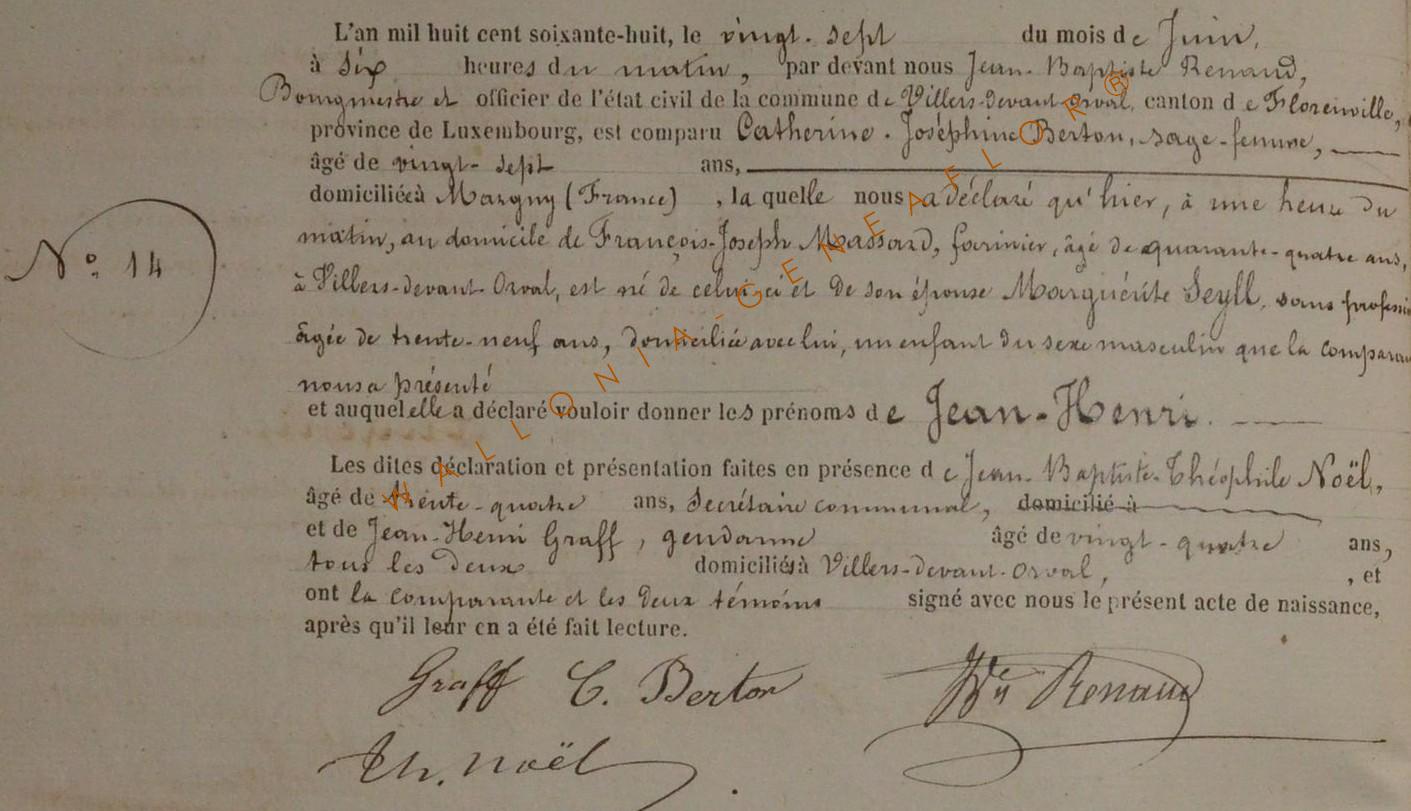 L'an mil huit cent soixante-huit, le vingt-sept du mois de Juin,
à six heures du matin, par devant nous Jean-Baptiste Renaud,
Bourgmestre et officier de l'état civil de la commune de Villers-devant-orval, canton de Florenville,
province de Luxembourg, est comparu Catherine-Joséphine Berton, sage-femme,
âgé de vingt-sept ans,
domiciliée à Margny (France), la quelle nous a déclaré qu'hier, à une heure du
N° 14
matin, au domicile de François-Joseph Massard, farinier, âgé de quarante-quatre ans,
à Villers-devant-Orval, est né de celui-ci et de son épouse Marguérite Seyll, sans professi
âgée de trente-neuf ans, domiciliée avec lui, un enfant du sexe masculin que la comparan
nous a présenté
et auquel elle a déclaré vouloir donner les prénoms de Jean-Henri.
Les dites déclaration et présentation faites en présence de Jean-Baptiste-Théophile Noël,
âgé de trente-quatre ans, secrétaire communal, domicilié à
et de Jean-Henri Graff, gendarme âgé de vingt-quatre ans,
tous les deux domiciliés à Villers-devant-orval, , et
ont la comparante et les deux témoins signé avec nous le présent acte de naissance,
après qu'il leur en a été fait lecture.
Graff C. Berton Renaud
Th. Noël
WALLONIA-GENEAFLOR®